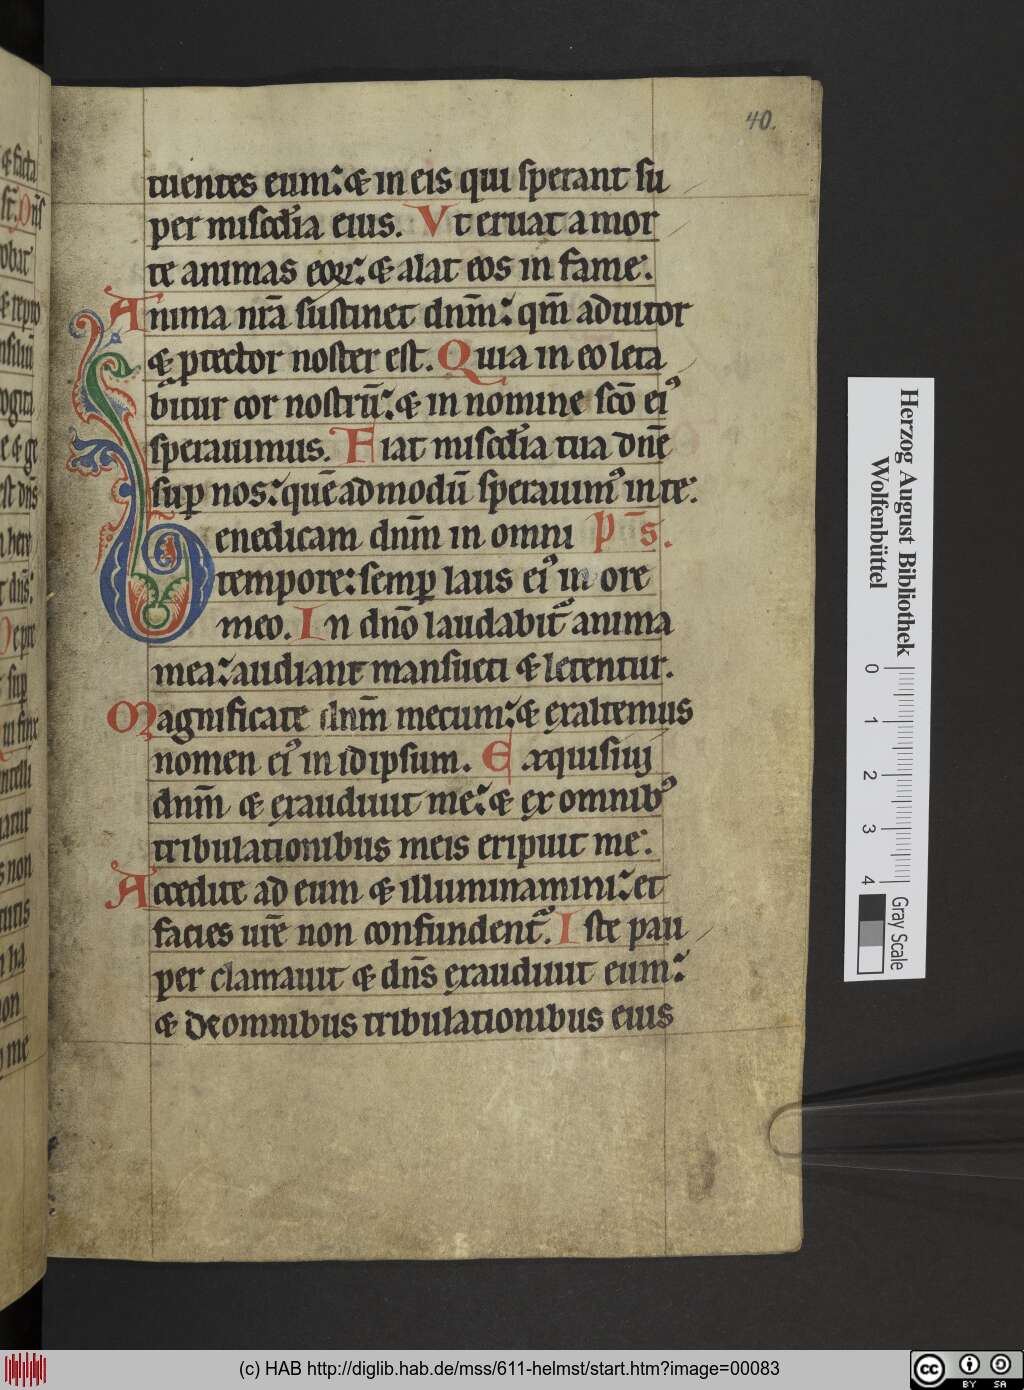 40.
tuentes eum: & in eis qui sperant su
per miscd̄ia eius. Vt eruat a mor
te animas eoꝝ: & alat eos in fame.
Anima nr̄a sustinet dnm̄: qm̄ adiutor
& ꝓtector noster est. Quia in eo leta
bitur cor nostrū: & in nomine sc̄o eiꝰ
sperauimus. Fiat miscd̄ia tua dnē
suꝑ nos: quēadmodū sperauimꝰ in te:
Benedicam dnm̄ in omni p̄s.
tempore: semꝑ laus eiꝰ in ore
meo. In dn̄o laudabit᷑ anima
mea: audiant mansueti & letentur.
Magnificate dnm̄ mecum: & exaltemus
nomen eiꝰ in idipsum. Exquisiui
dnm̄ & exaudiuit me: & ex omnibꝰ
tribulationibus meis eripuit me.
Accedite ad eum & illuminamini: et
facies ur̄e non confundent᷑. Iste pau
per clamauit & dn̄s exaudiuit eum:
& de omnibus tribulationibus eius
Herzog August Bibliothek
Wolfenbüttel
0 1 2 3 4
Gray Scale
(c) HAB http://diglib.hab.de/mss/611-helmst/start.htm?image=00083
cc BY SA